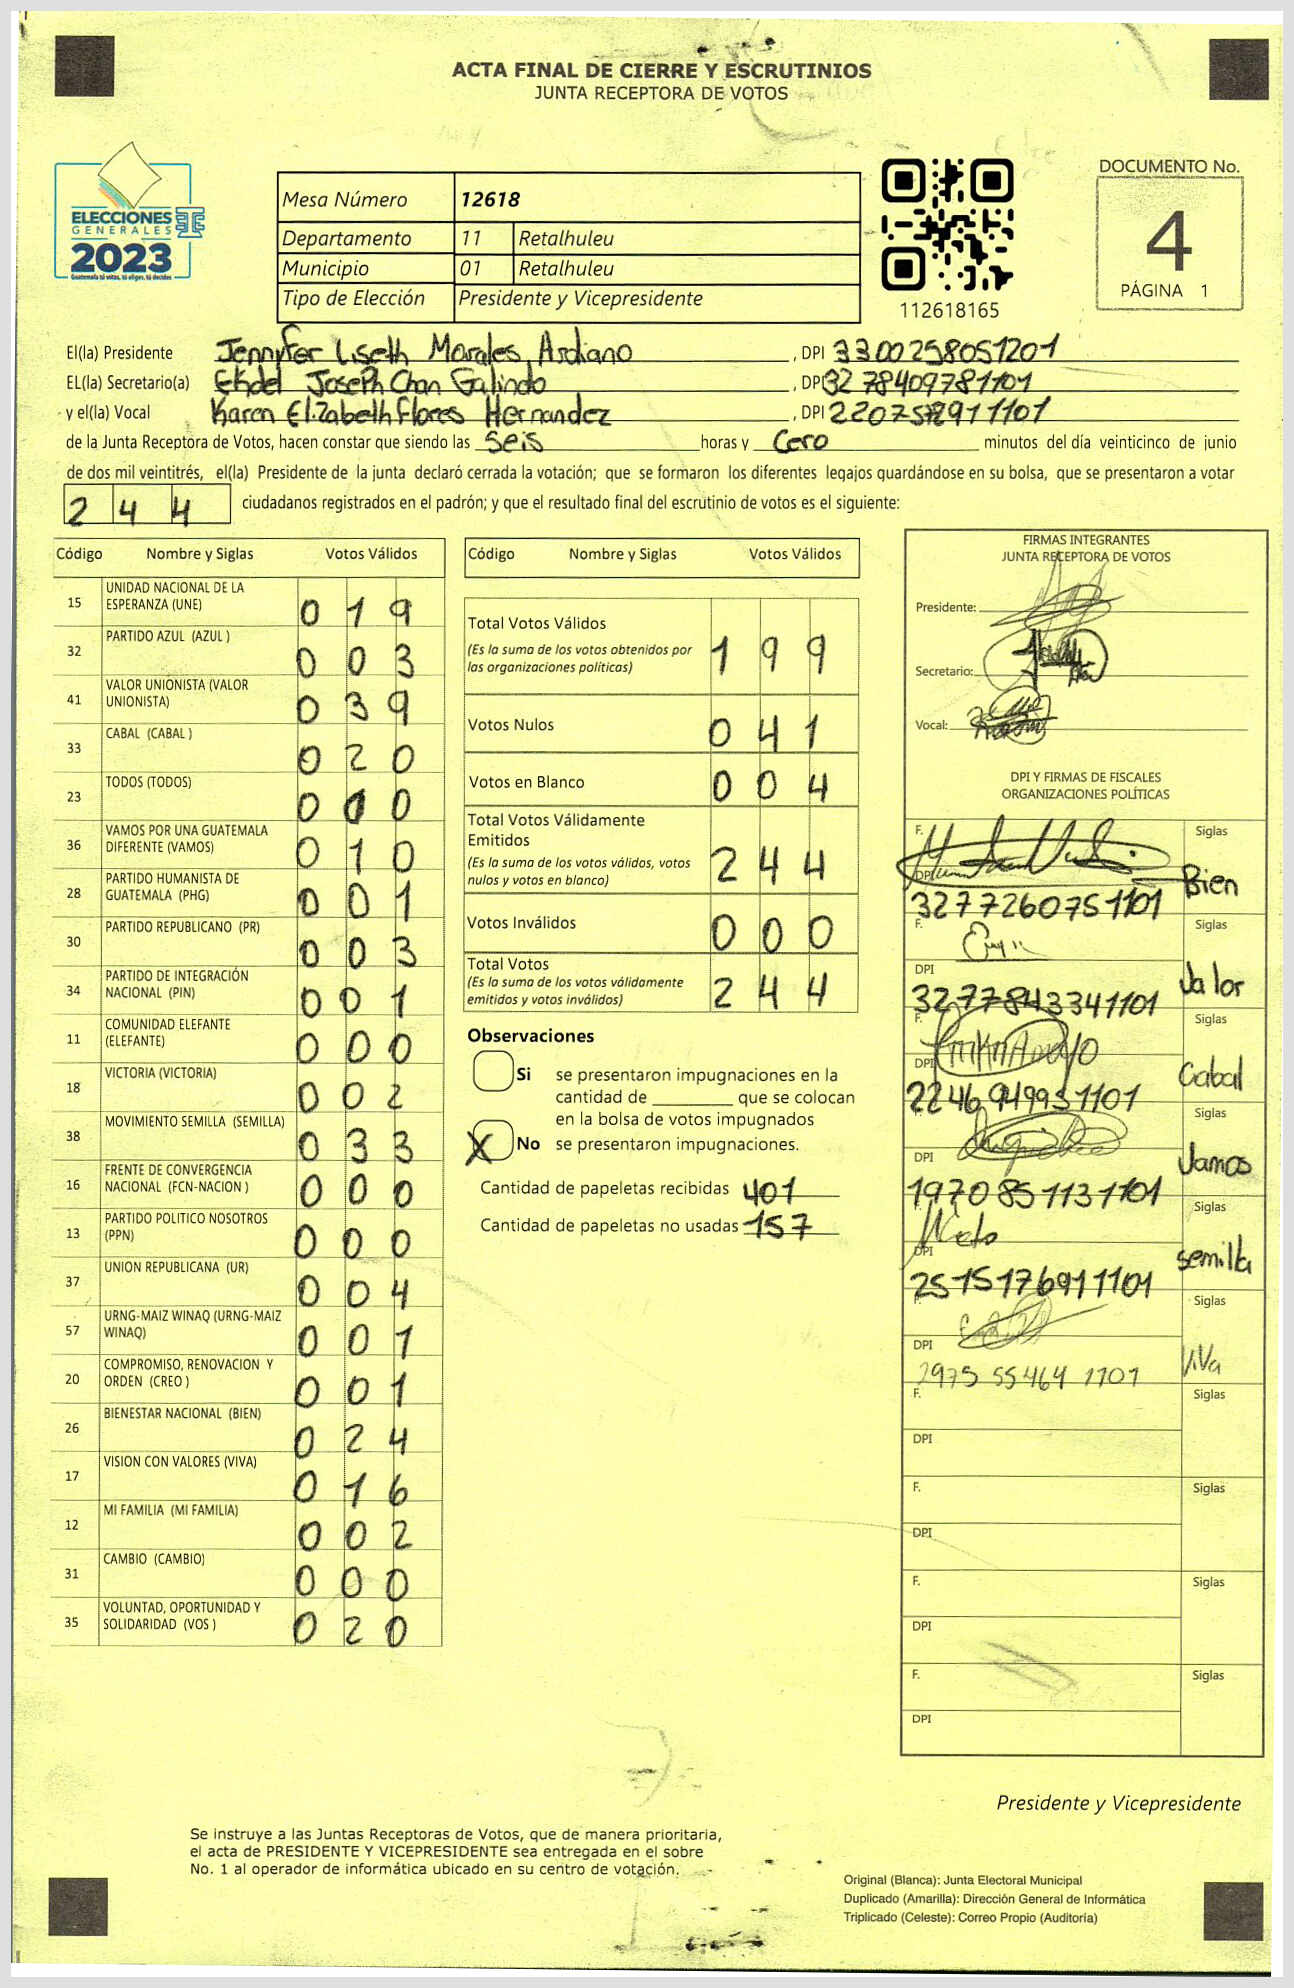 ACTA FINAL DE CIERRE Y ESCRUTINIOS
JUNTA RECEPTORA DE VOTOS
ELECCIONES
GENERALES
2023
Guatemala tú votas, tú eliges, tú decides
Mesa Número 12618
Departamento 11 Retalhuleu
Municipio 01 Retalhuleu
Tipo de Elección Presidente y Vicepresidente
112618165
DOCUMENTO No.
4
PÁGINA 1
El(la) Presidente Jennyfer Liseth Morales Ardiano, DPI 3300258051201
EL(la) Secretario(a) Ekdel Joseph Chan Galindo, DPI 3278409781101
y el(la) Vocal Karen Elizabeth Flores Hernandez, DPI
de la Junta Receptora de Votos, hacen constar que siendo las seis horas y cero minutos del día veinticinco de junio
de dos mil veintitrés, el(la) Presidente de la junta declaró cerrada la votación; que se formaron los diferentes legajos guardándose en su bolsa, que se presentaron a votar
244 ciudadanos registrados en el padrón; y que el resultado final del escrutinio de votos es el siguiente:
Código Nombre y Siglas Votos Válidos
15 UNIDAD NACIONAL DE LA ESPERANZA (UNE) 019
32 PARTIDO AZUL (AZUL ) 003
41 VALOR UNIONISTA (VALOR UNIONISTA) 039
33 CABAL (CABAL ) 020
23 TODOS (TODOS) 000
36 VAMOS POR UNA GUATEMALA DIFERENTE (VAMOS) 010
28 PARTIDO HUMANISTA DE GUATEMALA (PHG) 001
30 PARTIDO REPUBLICANO (PR) 003
34 PARTIDO DE INTEGRACIÓN NACIONAL (PIN) 001
11 COMUNIDAD ELEFANTE (ELEFANTE) 000
18 VICTORIA (VICTORIA) 002
38 MOVIMIENTO SEMILLA (SEMILLA) 033
16 FRENTE DE CONVERGENCIA NACIONAL (FCN-NACION ) 000
13 PARTIDO POLITICO NOSOTROS (PPN) 000
37 UNION REPUBLICANA (UR) 004
57 URNG-MAIZ WINAQ (URNG-MAIZ WINAQ) 001
20 COMPROMISO, RENOVACION Y ORDEN (CREO ) 001
26 BIENESTAR NACIONAL (BIEN) 024
17 VISION CON VALORES (VIVA) 016
12 MI FAMILIA (MI FAMILIA) 002
31 CAMBIO (CAMBIO) 000
35 VOLUNTAD, OPORTUNIDAD Y SOLIDARIDAD (VOS ) 020
Código Nombre y Siglas Votos Válidos
Total Votos Válidos 199
(Es la suma de los votos obtenidos por
las organizaciones políticas)
Votos Nulos 041
Votos en Blanco 004
Total Votos Válidamente
Emitidos 244
(Es la suma de los votos válidos, votos
nulos y votos en blanco)
Votos Inválidos 000
Total Votos 244
(Es la suma de los votos válidamente
emitidos y votos inválidos)
Observaciones
Si se presentaron impugnaciones en la
cantidad de ________ que se colocan
en la bolsa de votos impugnados
X No se presentaron impugnaciones.
Cantidad de papeletas recibidas 401
Cantidad de papeletas no usadas 157
FIRMAS INTEGRANTES
JUNTA RECEPTORA DE VOTOS
Presidente:
Secretario:
Vocal:
DPI Y FIRMAS DE FISCALES
ORGANIZACIONES POLÍTICAS
F. Siglas
DPI 3277260751101 Bien
F. Siglas
DPI 3277843341101 Valor
F. Siglas
DPI 2246949931101 Cabal
F. Siglas
DPI 1970851131101 Vamos
F. Siglas
DPI 2515176911101 semilla
F. Siglas
DPI 2975 55464 1101 ViVa
F. Siglas
DPI
F. Siglas
DPI
F. Siglas
DPI
F. Siglas
DPI
Presidente y Vicepresidente
Se instruye a las Juntas Receptoras de Votos, que de manera prioritaria,
el acta de PRESIDENTE Y VICEPRESIDENTE sea entregada en el sobre
No. 1 al operador de informática ubicado en su centro de votación.
Original (Blanca): Junta Electoral Municipal
Duplicado (Amarilla): Dirección General de Informática
Triplicado (Celeste): Correo Propio (Auditoría)